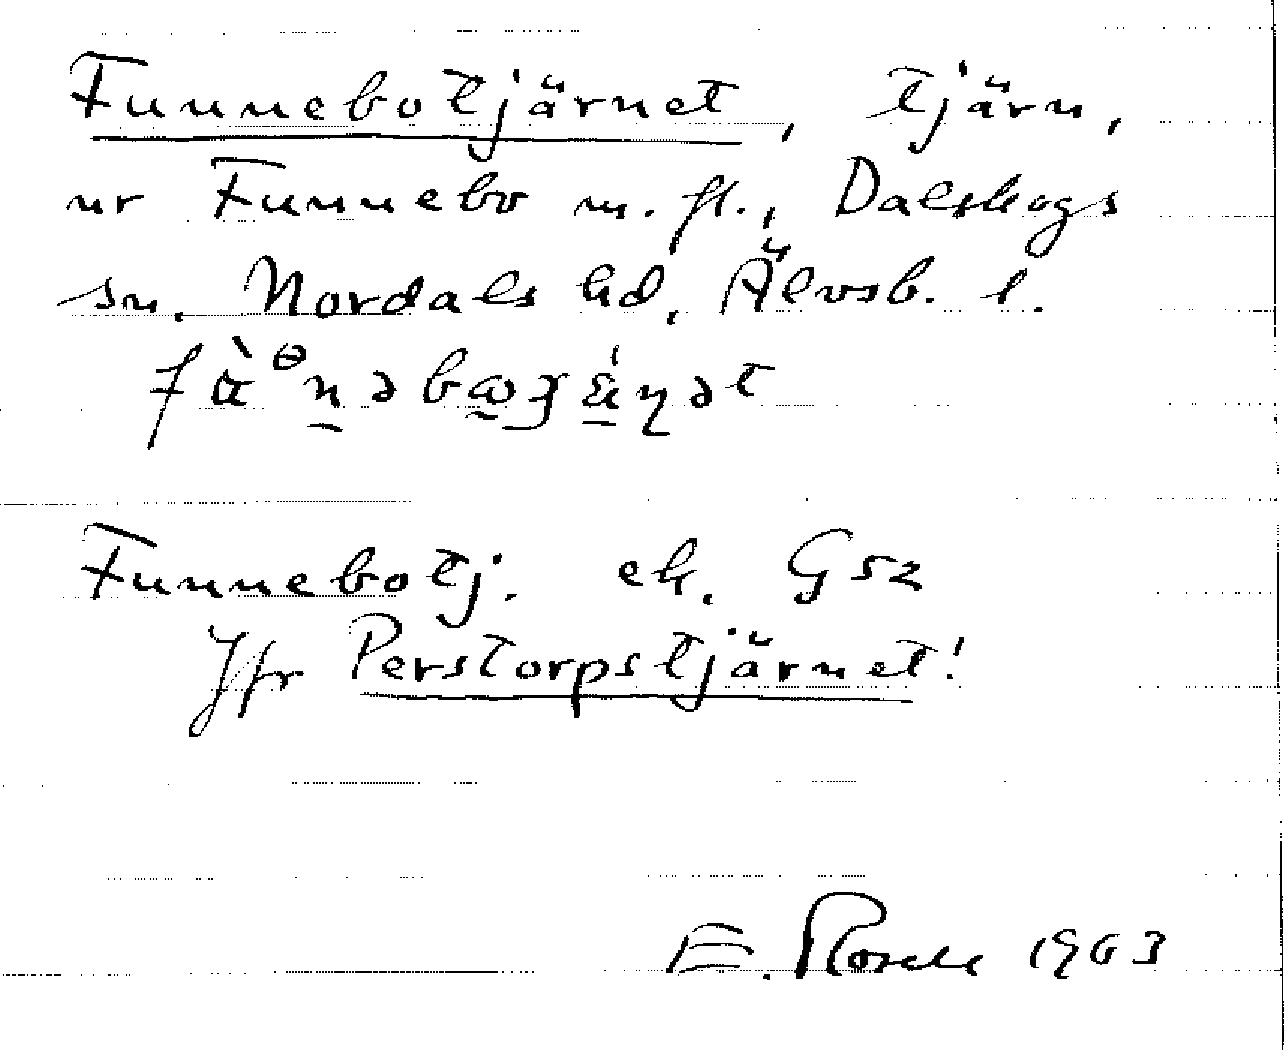 Funnebotjärnet, tjärn,
nr Funnebo m. fl., Dalskogs
sn. Nordals hd, Älvsb. l.
Funnebotj. ek. Gsz
Jfr Perstorpstjärnet!
E. 1963